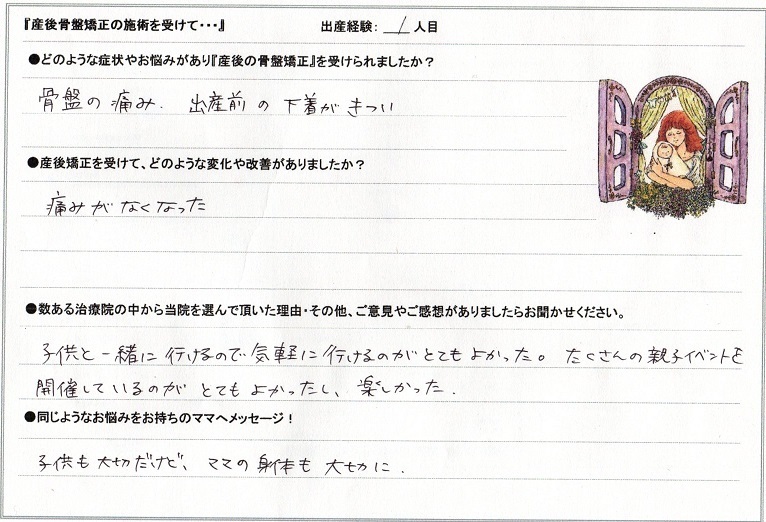 『産後骨盤矯正の施術を受けて・・・』 出産経験: 1 人目
●どのような症状やお悩みがあり『産後の骨盤矯正』を受けられましたか?
骨盤の痛み. 出産前の下着がきつい
●産後矯正を受けて、どのような変化や改善がありましたか?
痛みがなくなった
●数ある治療院の中から当院を選んで頂いた理由・その他、ご意見やご感想がありましたらお聞かせください。
子供と一緒に行けるので気軽に行けるのがとてもよかった。たくさんの親子イベントを
開催しているのがとてもよかったし、楽しかった.
●同じようなお悩みをお持ちのママへメッセージ!
子供も大切だけど、ママの身体も大切に.